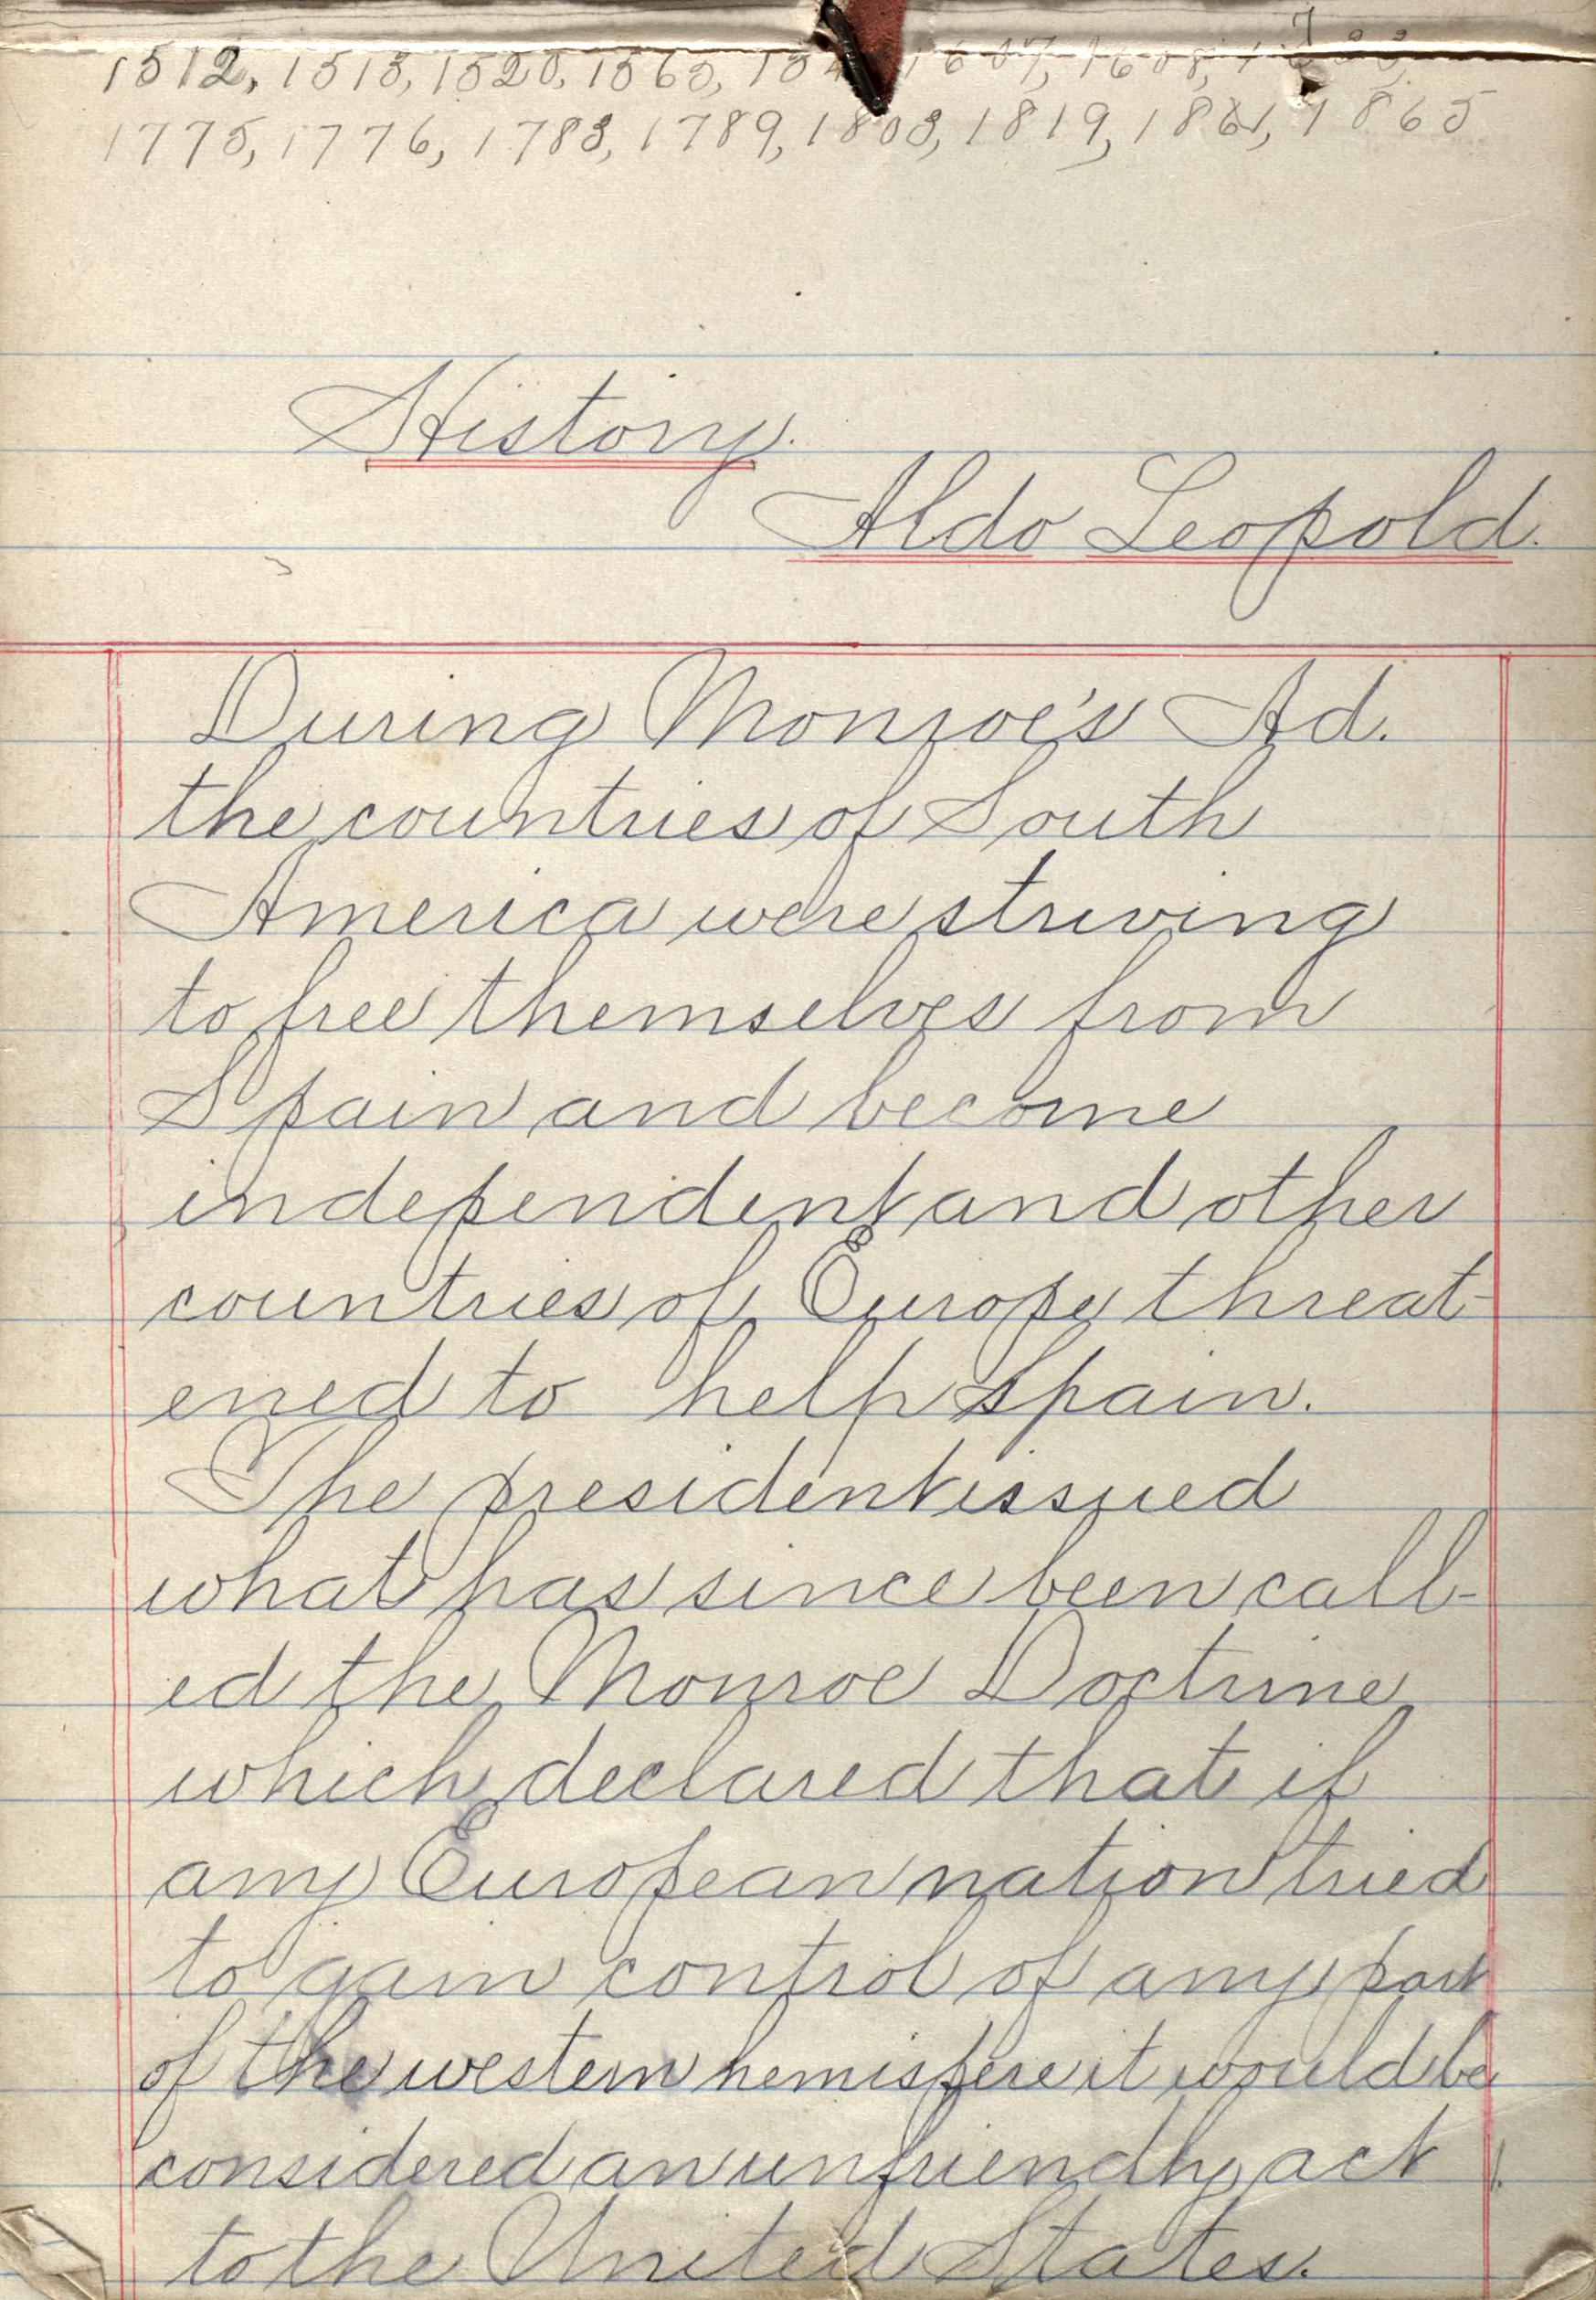 1512, 1513, 1520, 1565, 1607, 1608,
1775, 1776, 1783, 1789, 1803, 1819, 1861, 1865
History.
Aldo Leopold.
During Monroe's Ad.
the countries of South
America were striving
to free themselves from
Spain and become
independent and other
countries of Europe threat-
ened to help Spain.
The president issued
what has since been call-
ed the Monroe Doctrine
which declared that if
any European nation tried
to gain control of any part
of the western hemisfere it would be
considered an unfriendly act
to the United States.